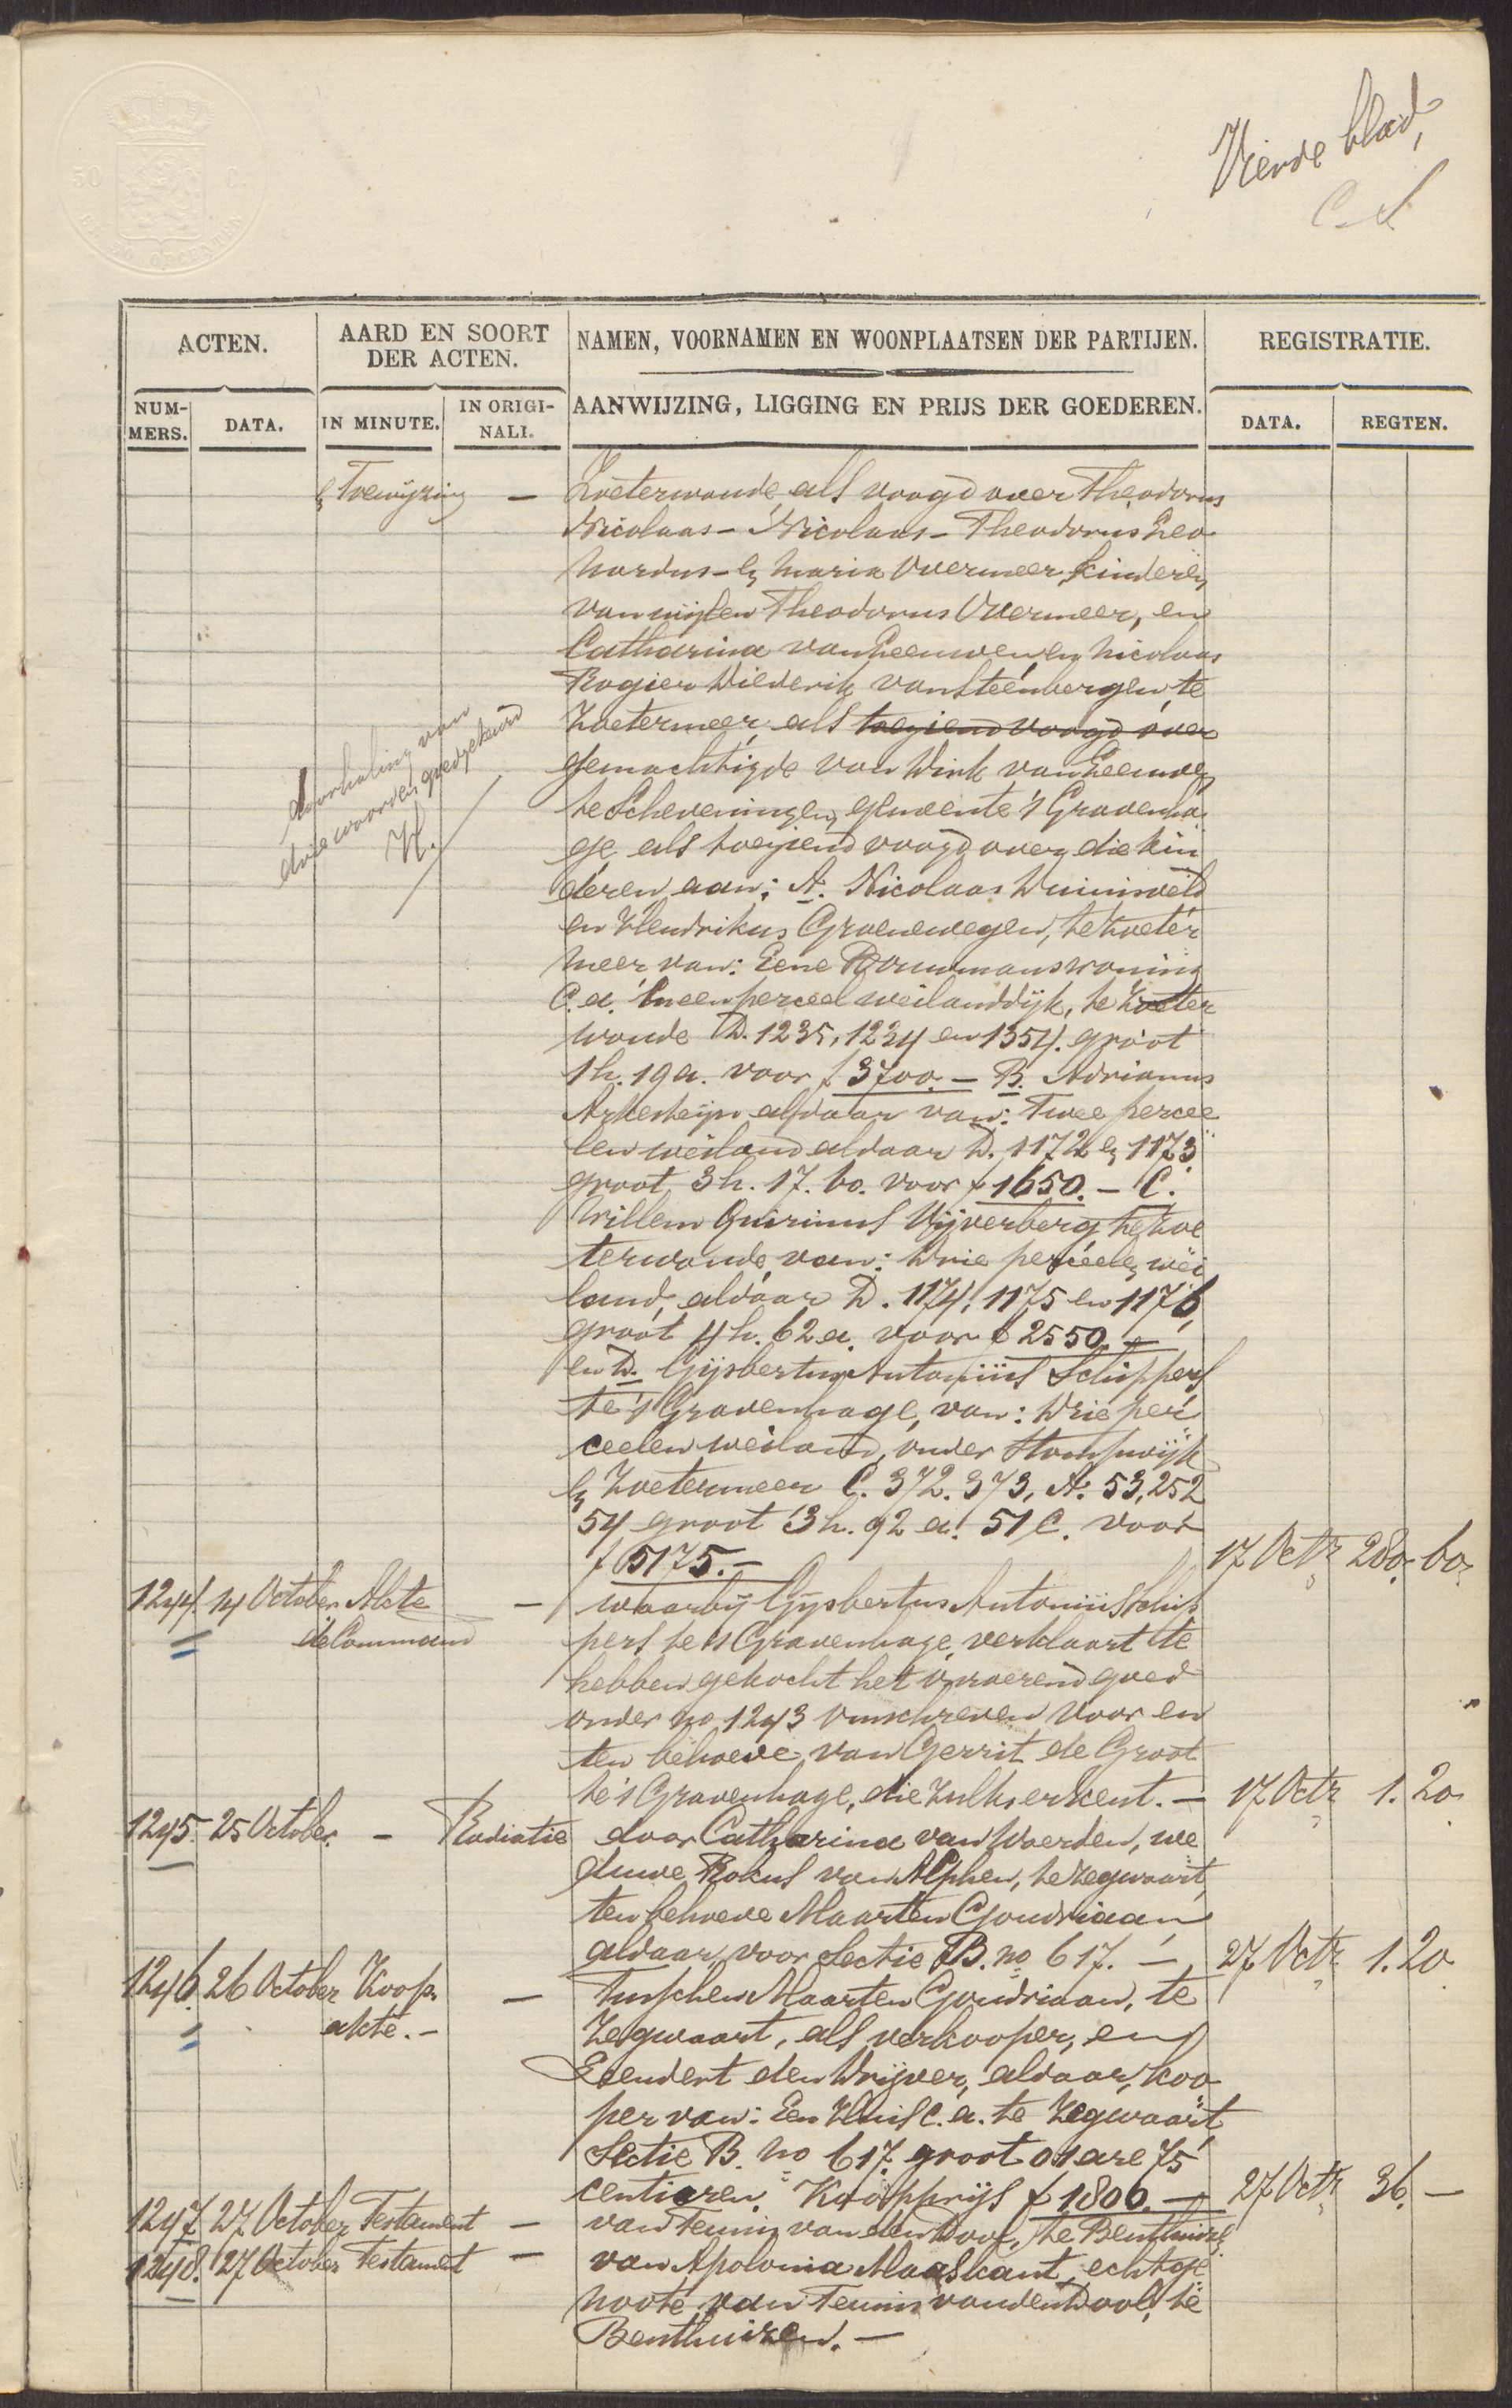 Vierde blad,
C. S
50 C.
ACTEN.
AARD EN SOORT
DER ACTEN.
NAMEN, VOORNAMEN EN WOONPLAATSEN DER PARTIJEN.
REGISTRATIE.
NUM-
MERS.
DATA.
IN MINUTE.
IN ORIGI-
NALI.
AANWIJZING, LIGGING EN PRIJS DER GOEDEREN.
DATA.
REGTEN.
& Toewijzing — Zoeterwoude, als voogd over Theodorus
Nicolaas - Nicolaas - Theodorus Leo
nardus - en Maria Overmeer, kinderen
van wijlen Theodorus Overmeer, en
Catharina van Leeuwen, en Nicolaas
Rogier Diederik van Steenbergen, te
Zoetermeer, als toeziend voogd over
gemachtigde van Dirk van Leeuwen
te Scheveningen, gemeente 's Gravenha
ge als toeziend voogd over die kin
deren, aan: A. Nicolaas Duinisveld
en Hendrikus Groenewegen, te Zoeter
meer, van: Eene Bouwmanswoning
C.a. en een perceel weilanddijk, te Zoeter
woude D. 1235, 1234 en 1354. groot
1 h. 19 a. voor f 3700.— B. Adrianus
Arkesteijn aldaar van: Twee percee
len weiland aldaar D. 1172 en 1173
groot 3 h. 17. 60. voor f 1650.— C.
Willem Quirinus Vijverberg te Zoe
terwoude, van: Drie perceelen wei
land, aldaar D. 1174, 1175 en 1176,
groot 4 h. 62 a. voor f 2550.—
en D. Gijsbertus Antonius Schippers
te 's Gravenhage, van: Drie per
ceelen weiland, onder Stompwijk
en Zoetermeer C. 372. 373, A. 53, 252
54 groot 3 h. 92 a. 51 C. voor
f 5175.— 17 Octr 280. 60.
doorhaling van
drie woorden goedgekeurd
H.
1244. 14 October Akte — waarbij Gijsbertus Antonius Schip
de Command pers te 's Gravenhage, verklaart te
hebben gekocht het onroerend goed
onder no 1243 omschreven voor en
ten behoeve van Gerrit de Groot
te 's Gravenhage, die zulks erkent.— 17 Octr 1. 20.
1245. 25 October — Radiatie door Catharina van Woerden, we
duwe Rokus van Alphen, te Zegwaart,
ten behoeve Maarten Goudriaan
aldaar, voor Sectie B. no 617.— 27 Octr 1. 20
1246. 26 October Koop — Tusschen Maarten Goudriaan, te
akte.— Zegwaart, als verkooper, en
Leendert den Drijver, aldaar, koo
per van: Een Huis c.a. te Zegwaart
Sectie B. no 617. groot 01 are 75
centiaren. Koopprijs f 1806.— 27 Octr 36. —
1247 27 October Testament — van Teunis van den Dool, te Benthuizen.
1248. 27 October Testament — van Apolonia Maaskant, echtge
noote van Teunis van den Dool, te
Benthuizen.—